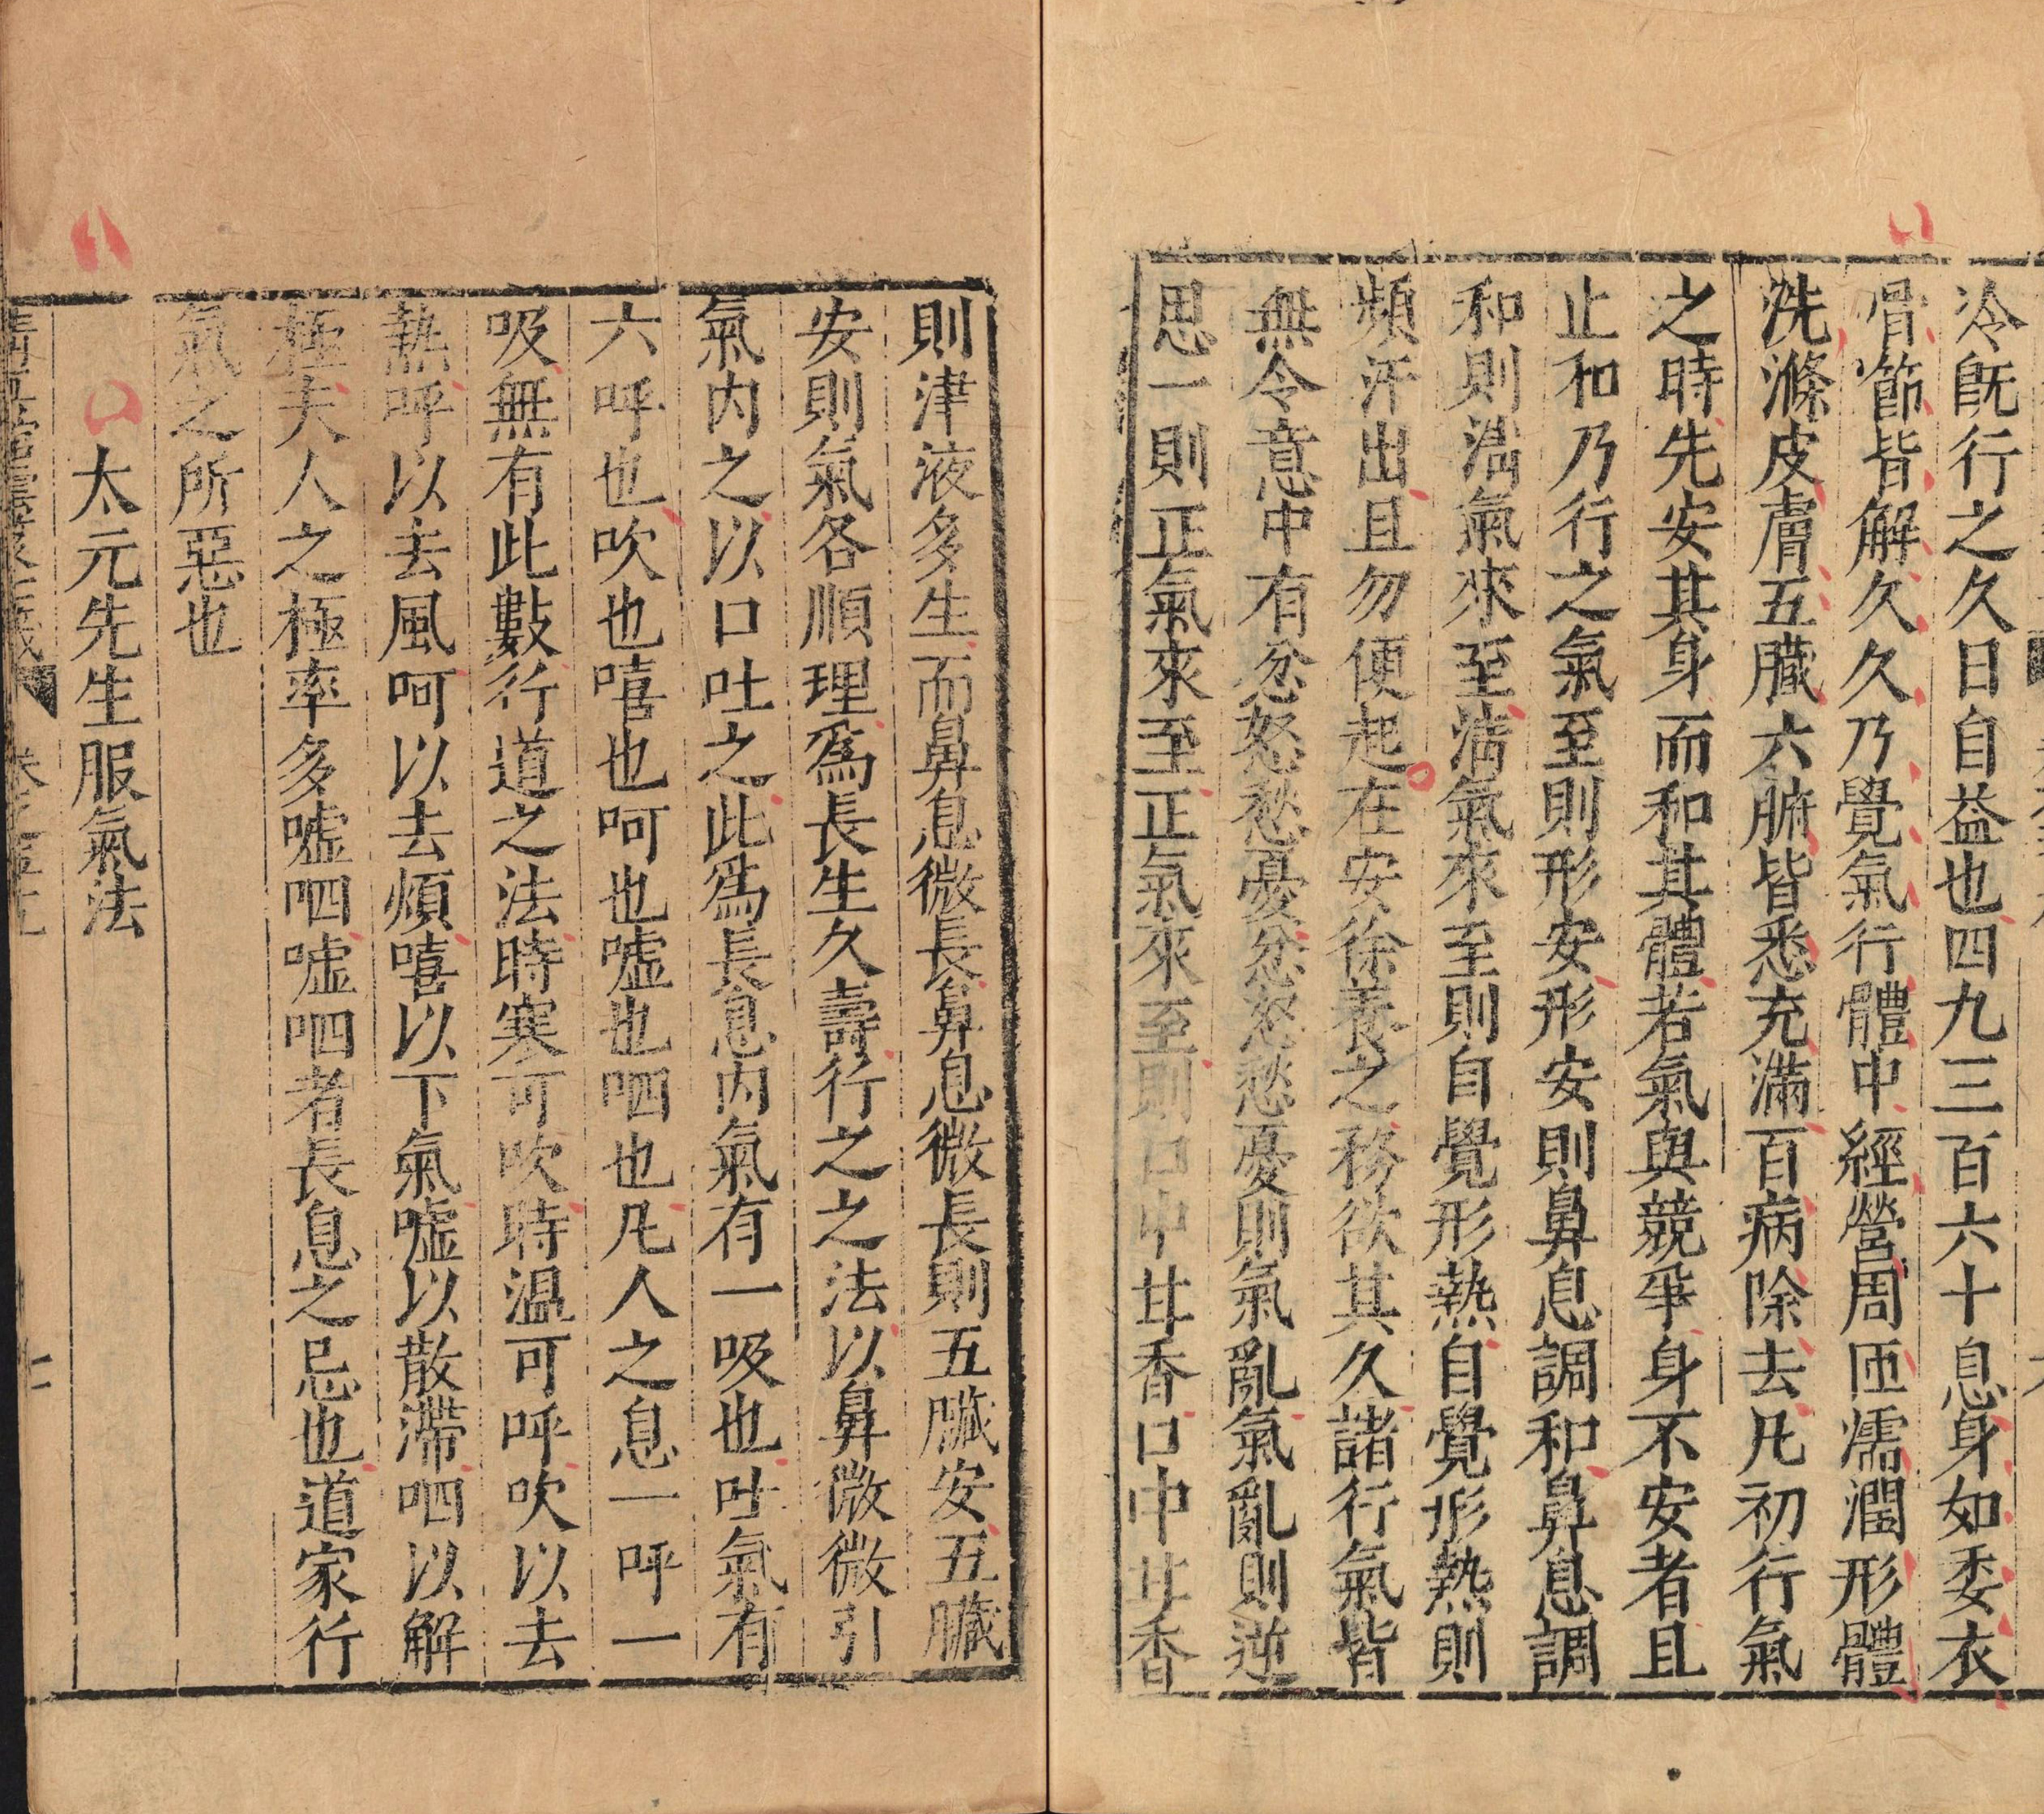 冷旣行之久日自益也四九三百六十息身如委衣
骨節皆解久久乃覺氣行體中經營周匝濡潤形體
洗滌皮膚五臟六腑皆悉充滿百病除去凡初行氣
之時先安其身而和其體若氣與競爭身不安者且
止和乃行之氣至則形安形安則鼻息調和鼻息調
和則淸氣來至淸氣來至則自覺形熱自覺形熱則
頻汗出且勿便起在安徐養之務欲其久諸行氣皆
無令意中有忿怒愁憂忿怒愁憂則氣亂氣亂則逆
思一則正氣來至正氣來至則口中甘香口中甘香
則津液多生而鼻息微長鼻息微長則五臟安五臟
安則氣各順理爲長生久壽行之之法以鼻微微引
氣内之以口吐之此爲長息内氣有一吸也吐氣有
六呼也吹也嘻也呵也嘘也呬也凡人之息一呼一
吸無有此數行道之法時寒可吹時温可呼吹以去
熱呼以去風呵以去煩嘻以下氣嘘以散滯呬以解
極夫人之極率多嘘呬嘘呬者長息之忌也道家行
氣之所惡也
太元先生服氣法